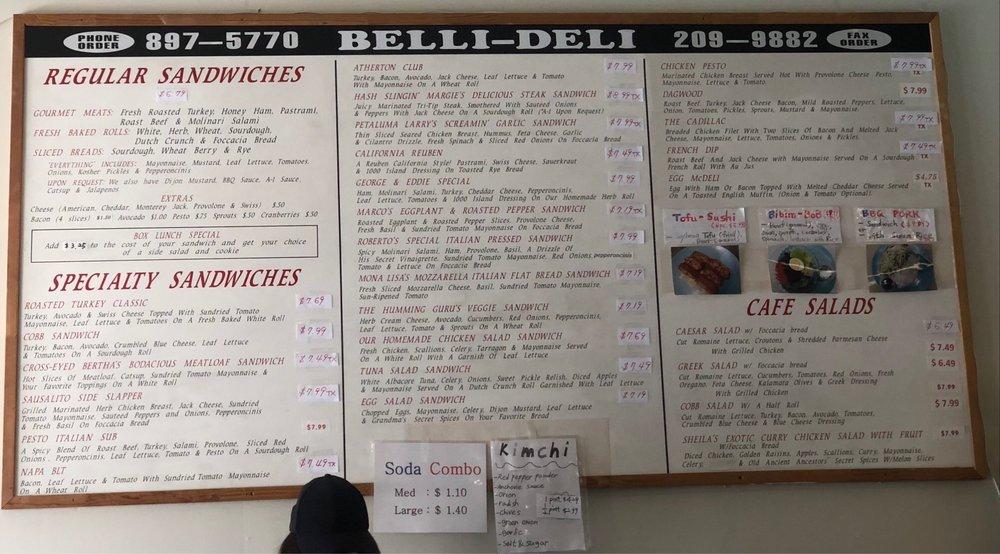 PHONE ORDER 897—5770 BELLI—DELI 209—9882 FAX ORDER
REGULAR SANDWICHES
GOURMET MEATS: Fresh Roasted Turkey, Honey Ham, Pastrami,
Roast Beef & Molinari Salami
FRESH BAKED ROLLS: White, Herb, Wheat, Sourdough,
Dutch Crunch & Foccacia Bread
SLICED BREADS: Sourdough, Wheat Berry & Rye
"EVERYTHING" INCLUDES: Mayonnaise, Mustard, Leaf Lettuce, Tomatoes,
Onions, Kosher Pickles & Pepperoncinis
UPON REQUEST: We also have Dijon Mustard, BBQ Sauce, A-1 Sauce,
Catsup & Jalapenos.
EXTRAS
Cheese (American, Cheddar, Monterey Jack, Provolone & Swiss) $.50
Bacon (4 slices) Avocado $1.00 Pesto $.75 Sprouts $.50 Cranberries $.50
BOX LUNCH SPECIAL
Add to the cost of your sandwich and get your choice
of a side salad and cookie
SPECIALTY SANDWICHES
ROASTED TURKEY CLASSIC $7.69
Turkey, Avocado & Swiss Cheese Topped With Sundried Tomato
Mayonnaise, Leaf Lettuce & Tomatoes On A Fresh Baked White Roll
COBB SANDWICH $7.99
Turkey, Bacon, Avocado, Crumbled Blue Cheese, Leaf Lettuce
& Tomatoes On A Sourdough Roll
CROSS-EYED BERTHA'S BODACIOUS MEATLOAF SANDWICH $7.49TX
Hot Slices Of Meatloaf, Catsup, Sundried Tomato Mayonnaise &
Your Favorite Toppings On A White Roll
SAUSALITO SIDE SLAPPER $7.99TX
Grilled Marinated Herb Chicken Breast, Jack Cheese, Sundried
Tomato Mayonnaise, Sauteed Peppers and Onions, Pepperoncinis
& Fresh Basil On Foccacia Bread
PESTO ITALIAN SUB $7.99
A Spicy Blend Of Roast Beef, Turkey, Salami, Provolone, Sliced Red
Onions, Pepperoncinis, Leaf Lettuce, Tomato & Pesto On A Sourdough Roll
NAPA BLT $7.49TX
Bacon, Leaf Lettuce & Tomato With Sundried Tomato Mayonnaise
On A Wheat Roll
ATHERTON CLUB $7.99
Turkey, Bacon, Avocado, Jack Cheese, Leaf Lettuce & Tomato
With Mayonnaise On A Wheat Roll
HASH SLINGIN' MARGIE'S DELICIOUS STEAK SANDWICH $8.99TX
Juicy Marinated Tri-Tip Steak, Smothered With Sauteed Onions
& Peppers With Jack Cheese On A Sourdough Roll ("A-1 Upon Request)
PETALUMA LARRY'S SCREAMIN' GARLIC SANDWICH $7.99TX
Thin Sliced Seared Chicken Breast, Hummus, Feta Cheese, Garlic
& Cilantro Drizzle, Fresh Spinach & Sliced Red Onions On Foccacia
CALIFORNIA REUBEN $7.49TX
A Reuben California Style! Pastrami, Swiss Cheese, Sauerkraut
& 1000 Island Dressing On Toasted Rye Bread
GEORGE & EDDIE SPECIAL $7.99
Ham, Molinari Salami, Turkey, Cheddar Cheese, Pepperoncinis,
Leaf Lettuce, Tomatoes & 1000 Island Dressing On Our Homemade Herb Roll
MARCO'S EGGPLANT & ROASTED PEPPER SANDWICH $7.19TX
Roasted Eggplant & Roasted Pepper Slices, Provolone Cheese,
Fresh Basil & Sundried Tomato Mayonnaise On Foccacia Bread
ROBERTO'S SPECIAL ITALIAN PRESSED SANDWICH $7.99
Spicy Molinari Salami, Ham, Provolone, Basil, A Drizzle Of
His Secret Vinaigrette, Sundried Tomato Mayonnaise, Red Onions, pepperoncinis
Tomato & Lettuce On Foccacia Bread
MONA LISA'S MOZZARELLA ITALIAN FLAT BREAD SANDWICH $7.19
Fresh Sliced Mozzarella Cheese, Basil, Sundried Tomato Mayonnaise,
Sun-Ripened Tomato
THE HUMMING GURU'S VEGGIE SANDWICH $7.19
Herb Cream Cheese, Avocado, Cucumbers, Red Onions, Pepperoncinis,
Leaf Lettuce, Tomato & Sprouts On A Wheat Roll
OUR HOMEMADE CHICKEN SALAD SANDWICH $7.69
Fresh Chicken, Scallions, Celery, Tarragon & Mayonnaise Served
On A White Roll With A Garnish Of Leaf Lettuce
TUNA SALAD SANDWICH $7.49
White Albacore Tuna, Celery, Onions, Sweet Pickle Relish, Diced Apples
& Mayonnaise Served On A Dutch Crunch Roll Garnished With Leaf Lettuce
EGG SALAD SANDWICH $7.19
Chopped Eggs, Mayonnaise, Celery, Dijon Mustard, Leaf Lettuce
& Grandma's Secret Spices On Your Favorite Bread
CHICKEN PESTO $7.99TX
Marinated Chicken Breast Served Hot With Provolone Cheese Pesto,
Mayonnaise, Lettuce & Tomato.
DAGWOOD $7.99
Roast Beef, Turkey, Jack Cheese Bacon, Mild Roasted Peppers, Lettuce,
Onion, Tomatoes, Pickles, Sprouts, Mustard & Mayonnaise
THE CADILLAC $7.99TX
Breaded Chicken Filet With Two Slices Of Bacon And Melted Jack
Cheese, Mayonnaise, Lettuce, Tomatoes, Onions & Pickles.
FRENCH DIP $7.49TX
Roast Beef And Jack Cheese with Mayonnaise Served On A Sourdough
French Roll With Au Jus
EGG McDELI $4.75 TX
Egg With Ham Or Bacon Topped With Melted Cheddar Cheese Served
On A Toasted English Muffin. (Onion & Tomato Optional).
Tofu-Sushi
Bibim-Bob
BBQ PORK
Sandwich
CAFE SALADS
CAESAR SALAD w/ Foccacia bread $6.49
Cut Romaine Lettuce, Croutons & Shredded Parmesan Cheese
With Grilled Chicken $7.49
GREEK SALAD w/ foccacia bread $6.49
Cut Romaine Lettuce, Cucumbers, Tomatoes, Red Onions, Fresh
Oregano, Feta Cheese, Kalamata Olives & Greek Dressing
With Grilled Chicken $7.99
COBB SALAD w/ A Half Roll $7.99
Cut Romaine Lettuce, Turkey, Bacon, Avocado, Tomatoes,
Crumbled Blue Cheese & Blue Cheese Dressing
SHEILA'S EXOTIC CURRY CHICKEN SALAD WITH FRUIT $7.99
W/Foccacia Bread
Diced Chicken, Golden Raisins, Apples, Scallions, Curry, Mayonnaise,
Celery, & Old Ancient Ancestors' Secret Spices W/Melon Slices
Soda Combo
Med : $ 1.10
Large : $ 1.40
Kimchi
-Red pepper powder
-Anchovie sauce
-Onion
-radish
-chives
-green onion
-garlic
-Salt & sugar